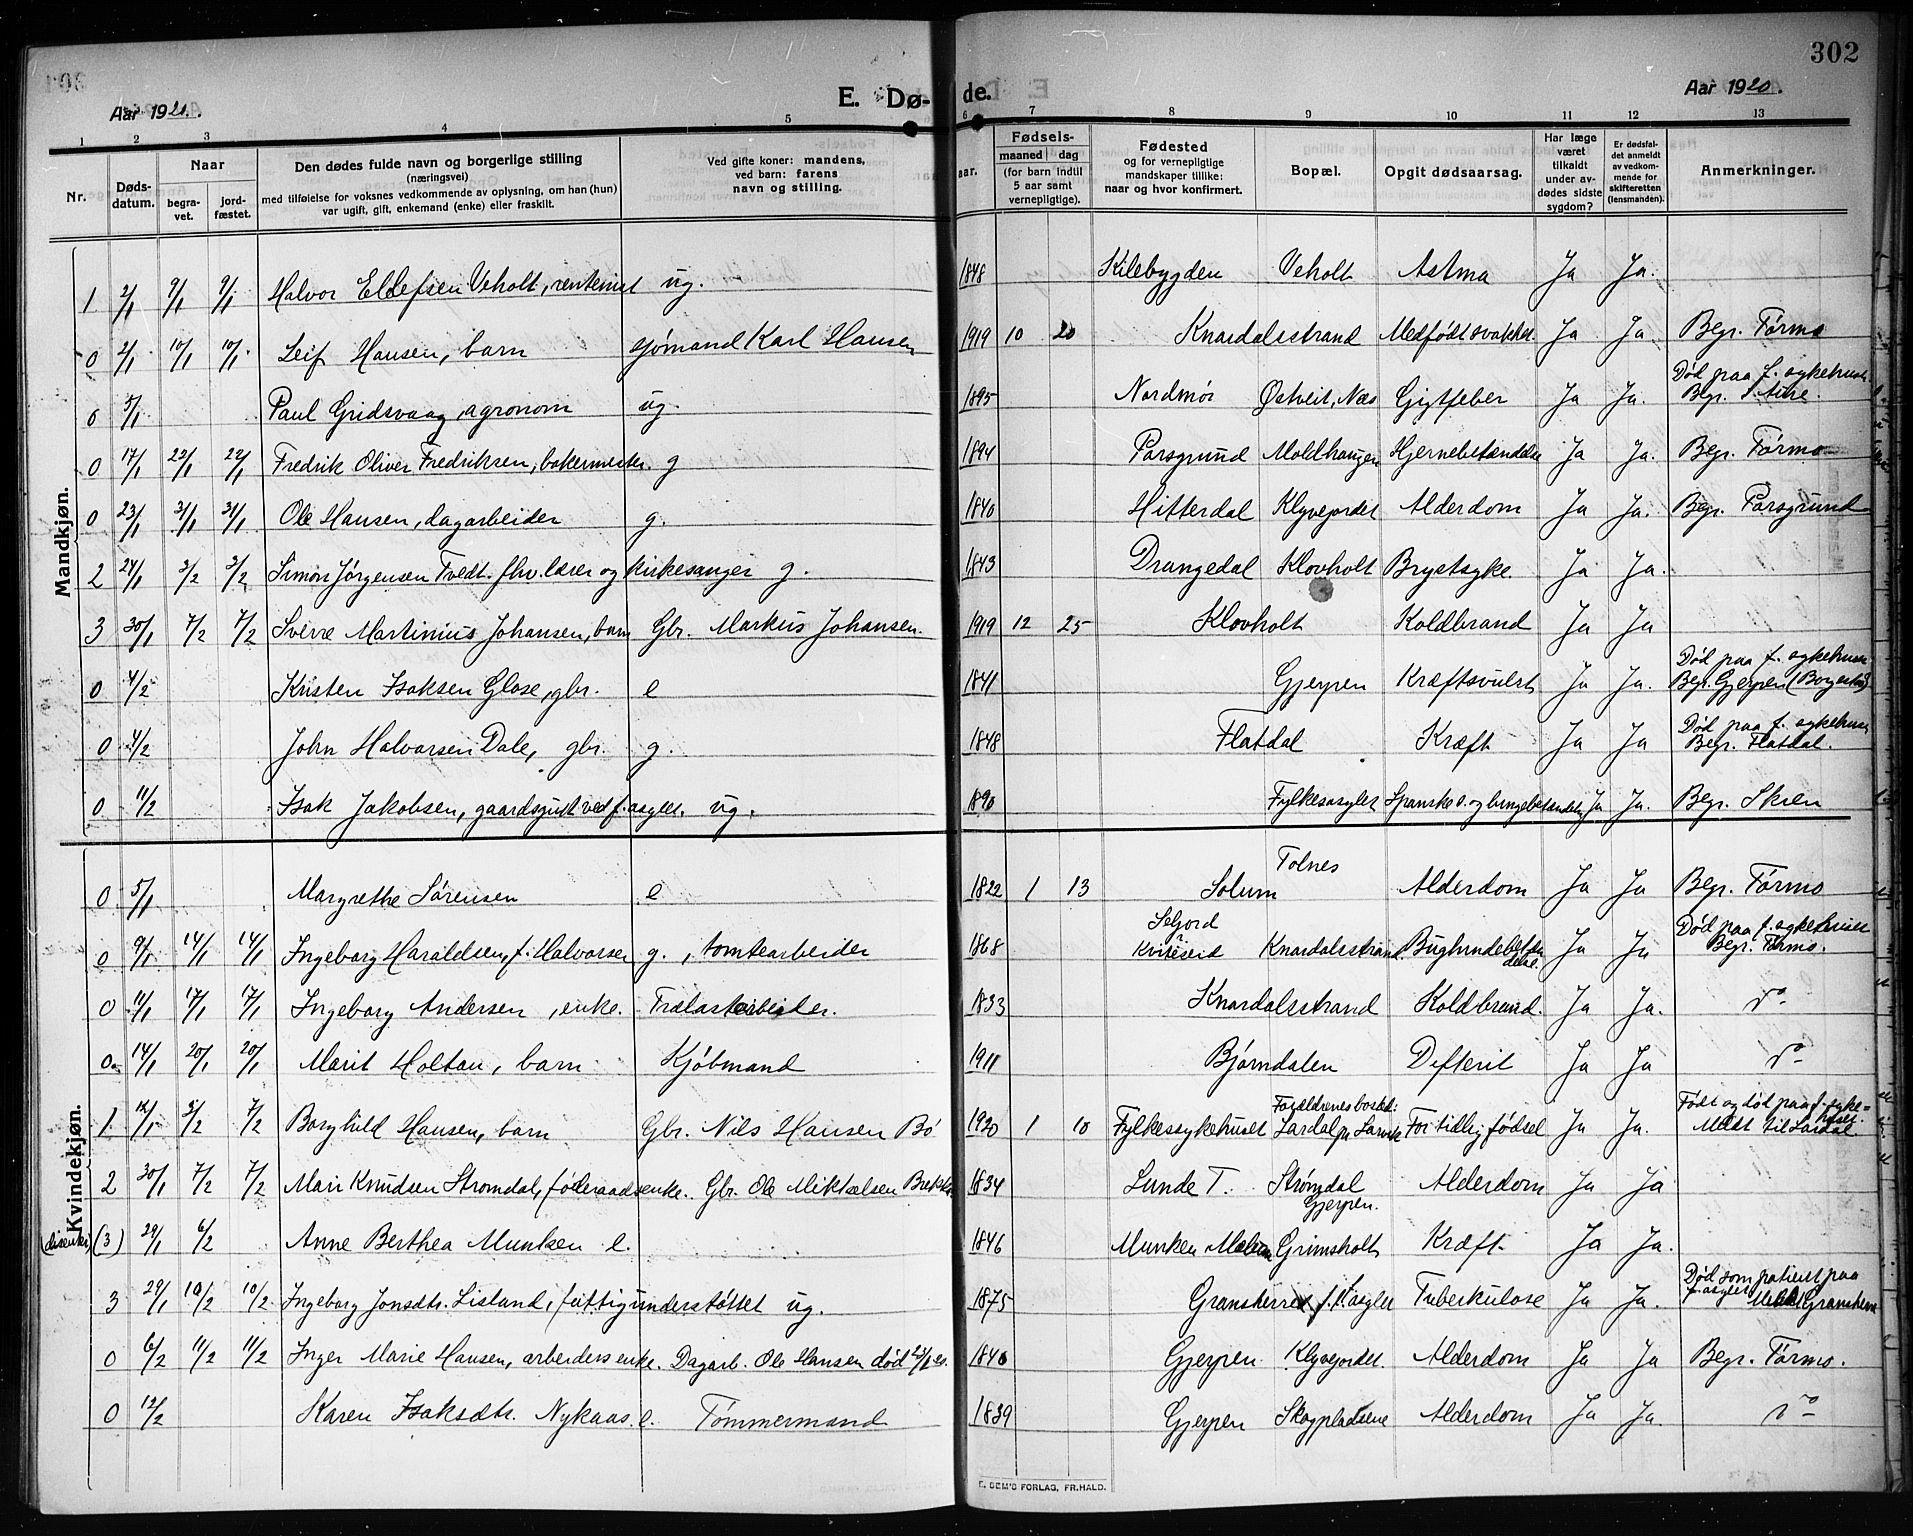 302
Aar 1920.
E. Dø-
de.
Aar 1920.
1 2 3 4 5 6 7 8 9 10 11 12 13
Nr.
Døds-
datum.
Naar
begra-
vet.
jord-
fæstet.
Den dødes fulde navn og borgerlige stilling
(næringsvei)
med tilføielse for voksnes vedkommende av oplysning, om han (hun)
var ugift, gift, enkemand (enke) eller fraskilt.
Ved gifte koner: mandens,
ved barn: farens
navn og stilling.
aar.
Fødsels-
maaned dag
(for barn indtil
5 aar samt
vernepligtige).
Fødested
og for vernepligtige
mandskaper tillike:
naar og hvor konfirmert.
Bopæl.
Opgit dødsaarsag.
Har læge
været
tilkaldt
under av-
dødes sidste
sygdom?
Er dødsfal-
det anmeldt
av vedkom-
mende for
skifteretten
(lensmanden).
Anmerkninger.
Mandkjøn.
1 2/1 9/1 9/1 Halvor Ellefsen Veholt, rentenist ug. 1848 Kilebygden Veholt Astma Ja Ja.
0 2/1 10/1 10/1 Leif Hansen, barn sjømand Karl Hansen 1919 10 20 Knardalsstrand Medfødt svakhet Ja Ja. Begr. Førmo
0 5/1 Paul Gridsvaag, agronom ug. 1895 Nordmør Østveit, Næs Gigtfeber Ja Ja. Død paa f. sykehuset
Begr. i Aure.
0 17/1 22/1 22/1 Fredrik Oliver Fredriksen, bakermester. g 1894 Porsgrund Moldhaugen Hjernebetændelse Ja Ja. Begr. Førmo
0 23/1 31/1 31/1 Ole Hansen, dagarbeider g. 1840 Hitterdal Klyvejordet Alderdom Ja Ja. Begr. Porsgrund
2 24/1 3/2 3/2 Simon Jørgensen Tvedt. fhv. lærer og kirkesanger g. 1843 Drangedal Klovholt Brystsyke. Ja Ja.
3 30/1 7/2 7/2 Sverre Martinius Johansen, barn Gbr. Markus Johansen. 1919 12 25 Klovholt Koldbrand Ja Ja
0 4/2 Kristen Isaksen Glose, gbr. e 1841 Gjerpen Kræftsvulst Ja Ja. Død paa f. sykehuset
Begr. Gjerpen (Borgestad)
0 4/2 John Halvorsen Dale, gbr. g. 1848 Flatdal Kræft Ja Ja Død paa f. sykehuset
Begr. Flatdal.
0 11/2 Isak Jakobsen, gaardsgut ved f. asylet. ug. 1890 Fylkesasylet Spanske s. og lungebetændelse Ja Ja. Begr. Skien
Kvindekjøn.
0 5/1 Margrethe Sørensen e 1822 1 13 Solum Tolnes Alderdom Ja Ja Begr. Førmo
0 9/1 14/1 14/1 Ingeborg Haraldsen, f. Halvorsen g., tomtearbeider 1868 Seljord
i
Kviteseid Knardalsstrand. Bughindebetæn
delse. Ja Ja Død paa f. sykehuset
Begr. Førmo.
0 11/1 17/1 17/1 Ingeborg Andersen, enke. Trælastarbeider. 1833 Knardalsstrand Koldbrand. Ja Ja. do
0 14/1 20/1 20/1 Marit Holtan, barn Kjøbmand 1911 Bjørndalen Difterit Ja Ja do
1 5/2 7/2 Borghild Hansen, barn Gbr. Nils Hansen Bø 1920 1 10 Fylkessykehuset Forældrenes bosted:
Lardal pr Larvik For tidlig fødsel Ja Ja. Født og død paa f. syke-
huset.
Meldt til Lardal
2 30/1 7/2 7/2 Mari Knudsen Strømdal, føderaadsenke. Gbr. Ole Mikkelsen 1834 Lunde T. Strømdal
Gjerpen. Alderdom Ja Ja
(disenter) (3) 29/1 6/2 Anne Berthea Munken e. 1846 Munken Melum Grimsholt Kræft Ja Ja.
3 29/1 10/2 10/2 Ingeborg Jonsdtr. Lisland, fattigunderstøttet ug. 1875 Gransherred f. asylet Tuberkulose Ja Ja. Død som patient paa
f. asylet Meldt Gransherred
0 6/2 11/2 11/2 Inger Marie Hansen, arbeiders enke. Dagarb. Ole Hansen død 23/1 1840 Gjerpen Klyvejordet Alderdom Ja Ja Begr. Førmo.
0 12/2 Karen Isaksdtr. Nykaas. e. Tømmermand 1839 Gjerpen Skogpladsene Alderdom Ja Ja. do
E. SEM'S FORLAG, FR.HALD.